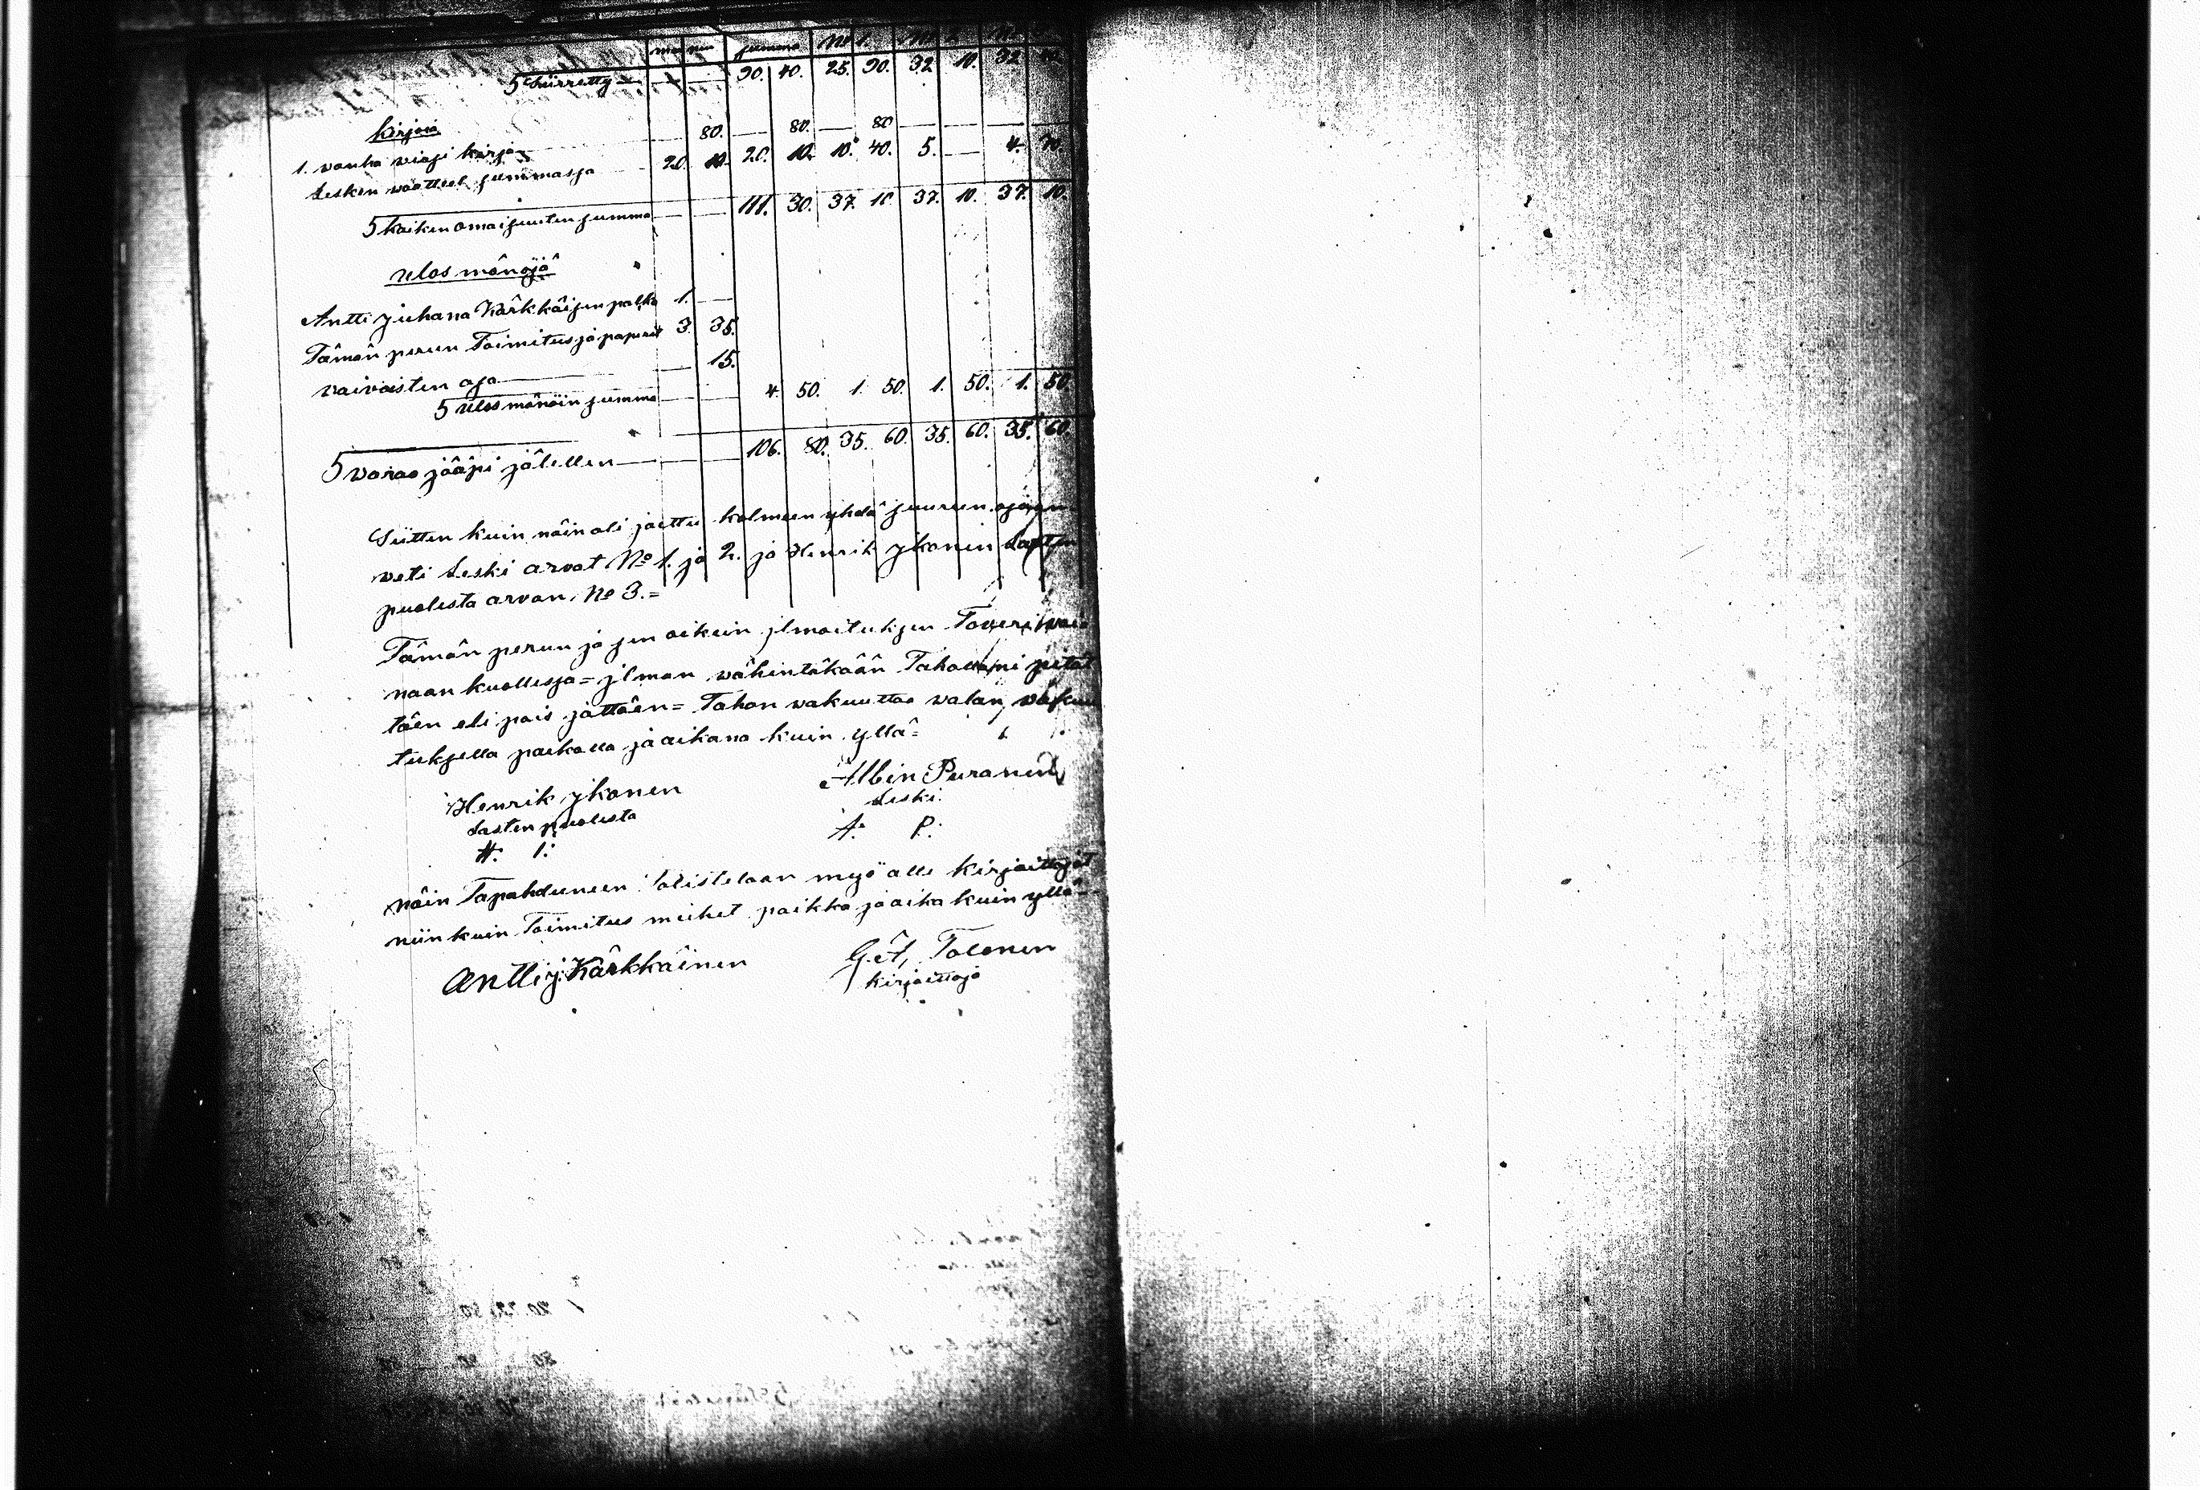 summa No 1.
5 Siirretty — 90. 40. 25. 90. 32 10. 32
kirjoja
1. vanha viaji kirja — 80. — 80. — 80 — — — —
Lesken vaatteet summasja 20. 10. 20. 10. 10. 40. 5. — 4. 70.
5 kaiken omaisuuten summa — 111. 30. 37. 10. 37. 10. 37. 10.
ulos mänöjä
Antti juhana Kärkkäisen palka 1. —
Tämän perun Toimitus ja paperit 3. 35.
vaivaisten osa — 15.
5 ulosmänöin summa — 4. 50. 1. 50. 1. 50. 1. 50.
5 varao jääpi jälellen — 106. 80. 35. 60. 35. 60. 35. 60.
Siitten kuin näin oli jaettu kolmeen yhdä suureen osaan
veti Leski arvat No 1. ja 2. ja Henrik ykonen Lasten
puolesta arvan, No 3. =
Tämän perun ja sen oikein jlmoituksen Toveri vai
naan kuollessa = jlman vähintäkään Tahallani petät
täen eli pois jättäen = Tahon vakuuttaa valan vakuu
tuksella paikalla ja aikana kuin yllä =
Henrik ykonen Albin Puranen
Lasten puolesta Leski.
H. I. A. P.
näin Tapahduneen Tolistelaan myö alle kirjoittajat
niin kuin Toimitus miehet paikka ja aika kuin yllä =
Antti j. Kärkkäinen G. A, Tolonen
kirjoittaja